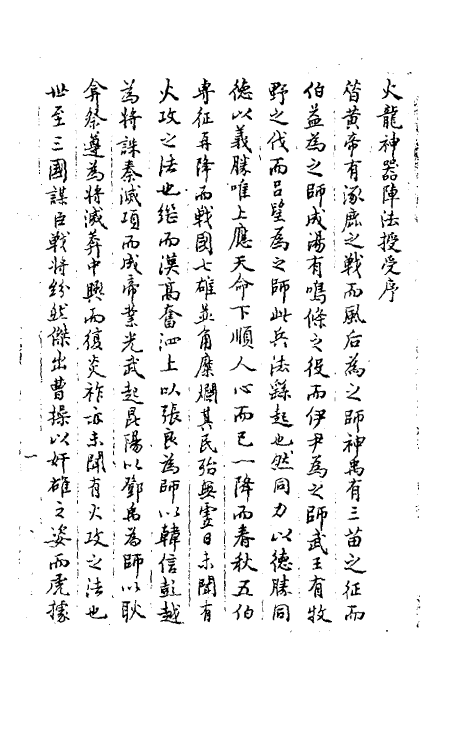 火龍神器陣法授受序
昔黃帝有涿鹿之戰而風后為之師神禹有三苗之征而
伯益為之師成湯有鳴條之役而伊尹為之師武王有牧
野之伐而呂望為之師此兵法繇起也然同力以德勝同
德以義勝唯上應天命下順人心而已一降而春秋五伯
專征再降而戰國七雄並角糜爛其民殆無虛日未聞有
火攻之法也繼而漢高奮泗上以張良為師以韓信彭越
為將誅秦滅項而成帝業光武起昆陽以鄧禹為師以耿
弇祭遵為將滅莽中興而復炎祚亦未聞有火攻之法也
世至三國謀臣戰將紛然傑出曹操以奸雄之姿而虎據
一